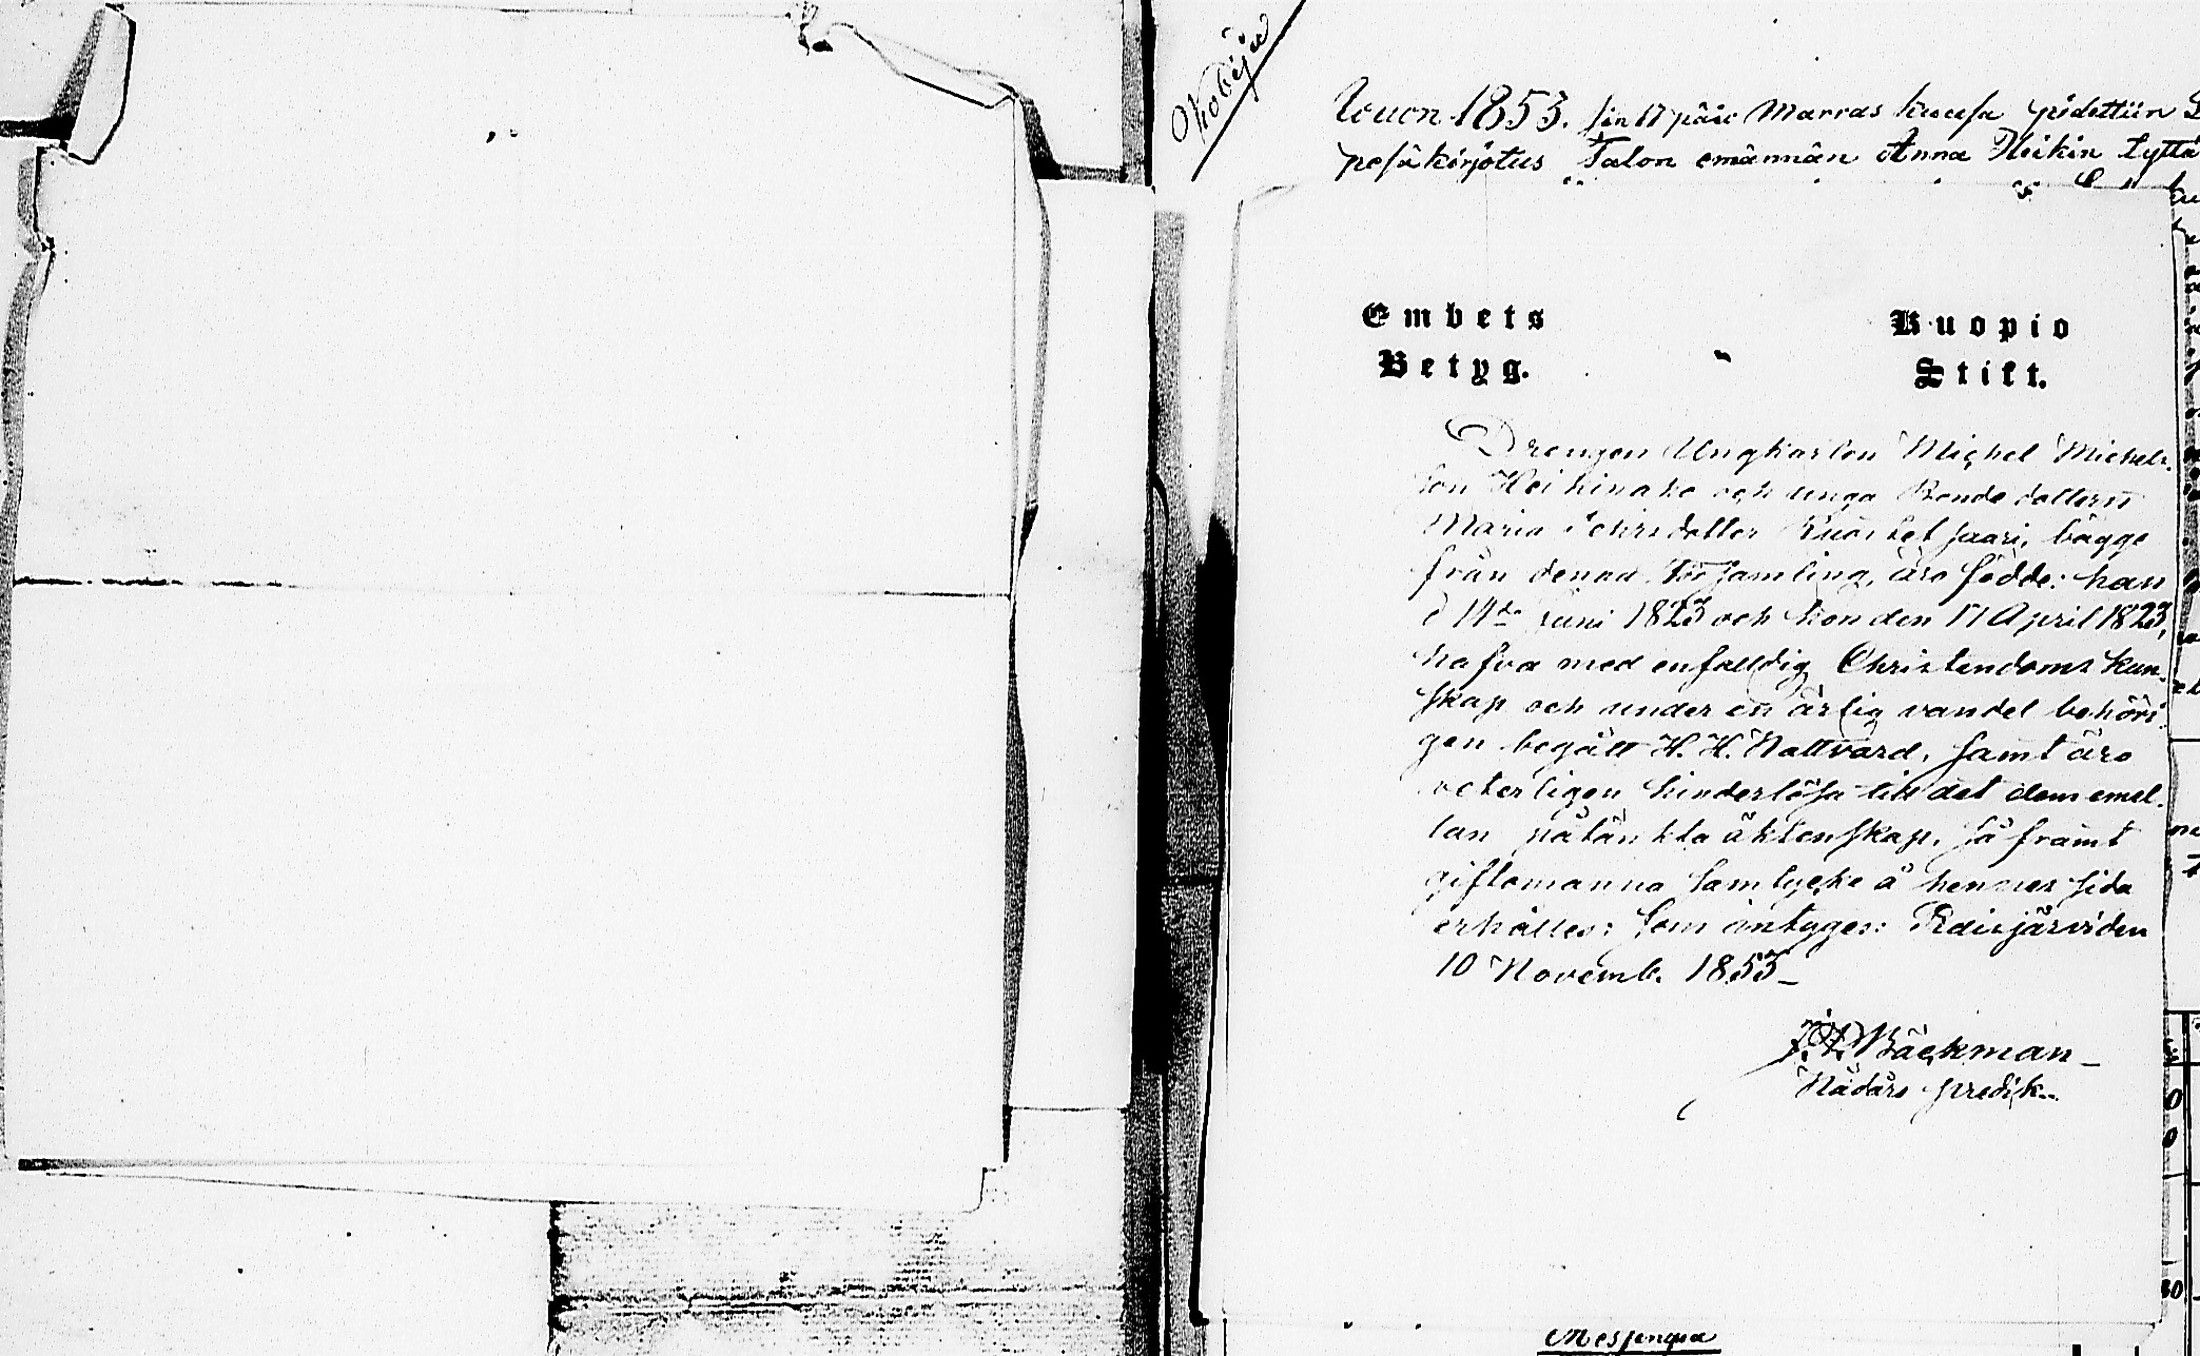 Wuon 1853. sin 17 päiv Marras kuusa pidettiin
pesäkirjotus Talon emännän Anna Heikin tyttä
Embets
Betyg.
Kuopio
Stift.
Drengen Ungkarlen Michel Michels-
son Heikinaho och unga Bonde dottern
Maria dotter saari, bägge
från denna Församling, äro födde: han
d 14de Juni 1823 och hon den 17 April 1823,
hafva med enfalldig Christendoms kun-
skap och under en ärlig vandel behöri-
gen begått H. H. Nattvard, samt äro
veterligen hinderlösa till det dem emel-
lan påtänkta äktenskap, så framt
giftomanna samtycke å hennes sida
erhålles; som intygas: Reisjärvi den
10 Novemb. 1853
Bäckman
Nådårs predik.
Messingiä